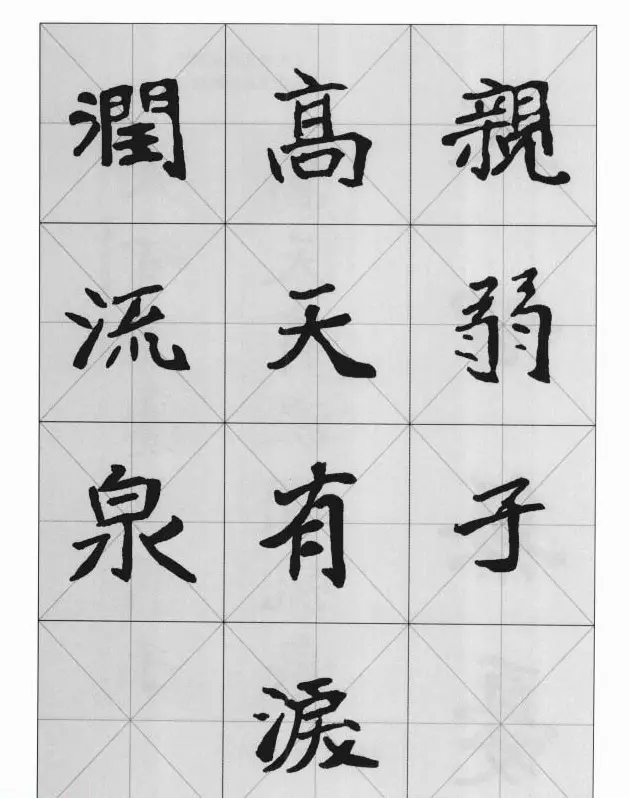 親弱子
高天有淚
潤流泉